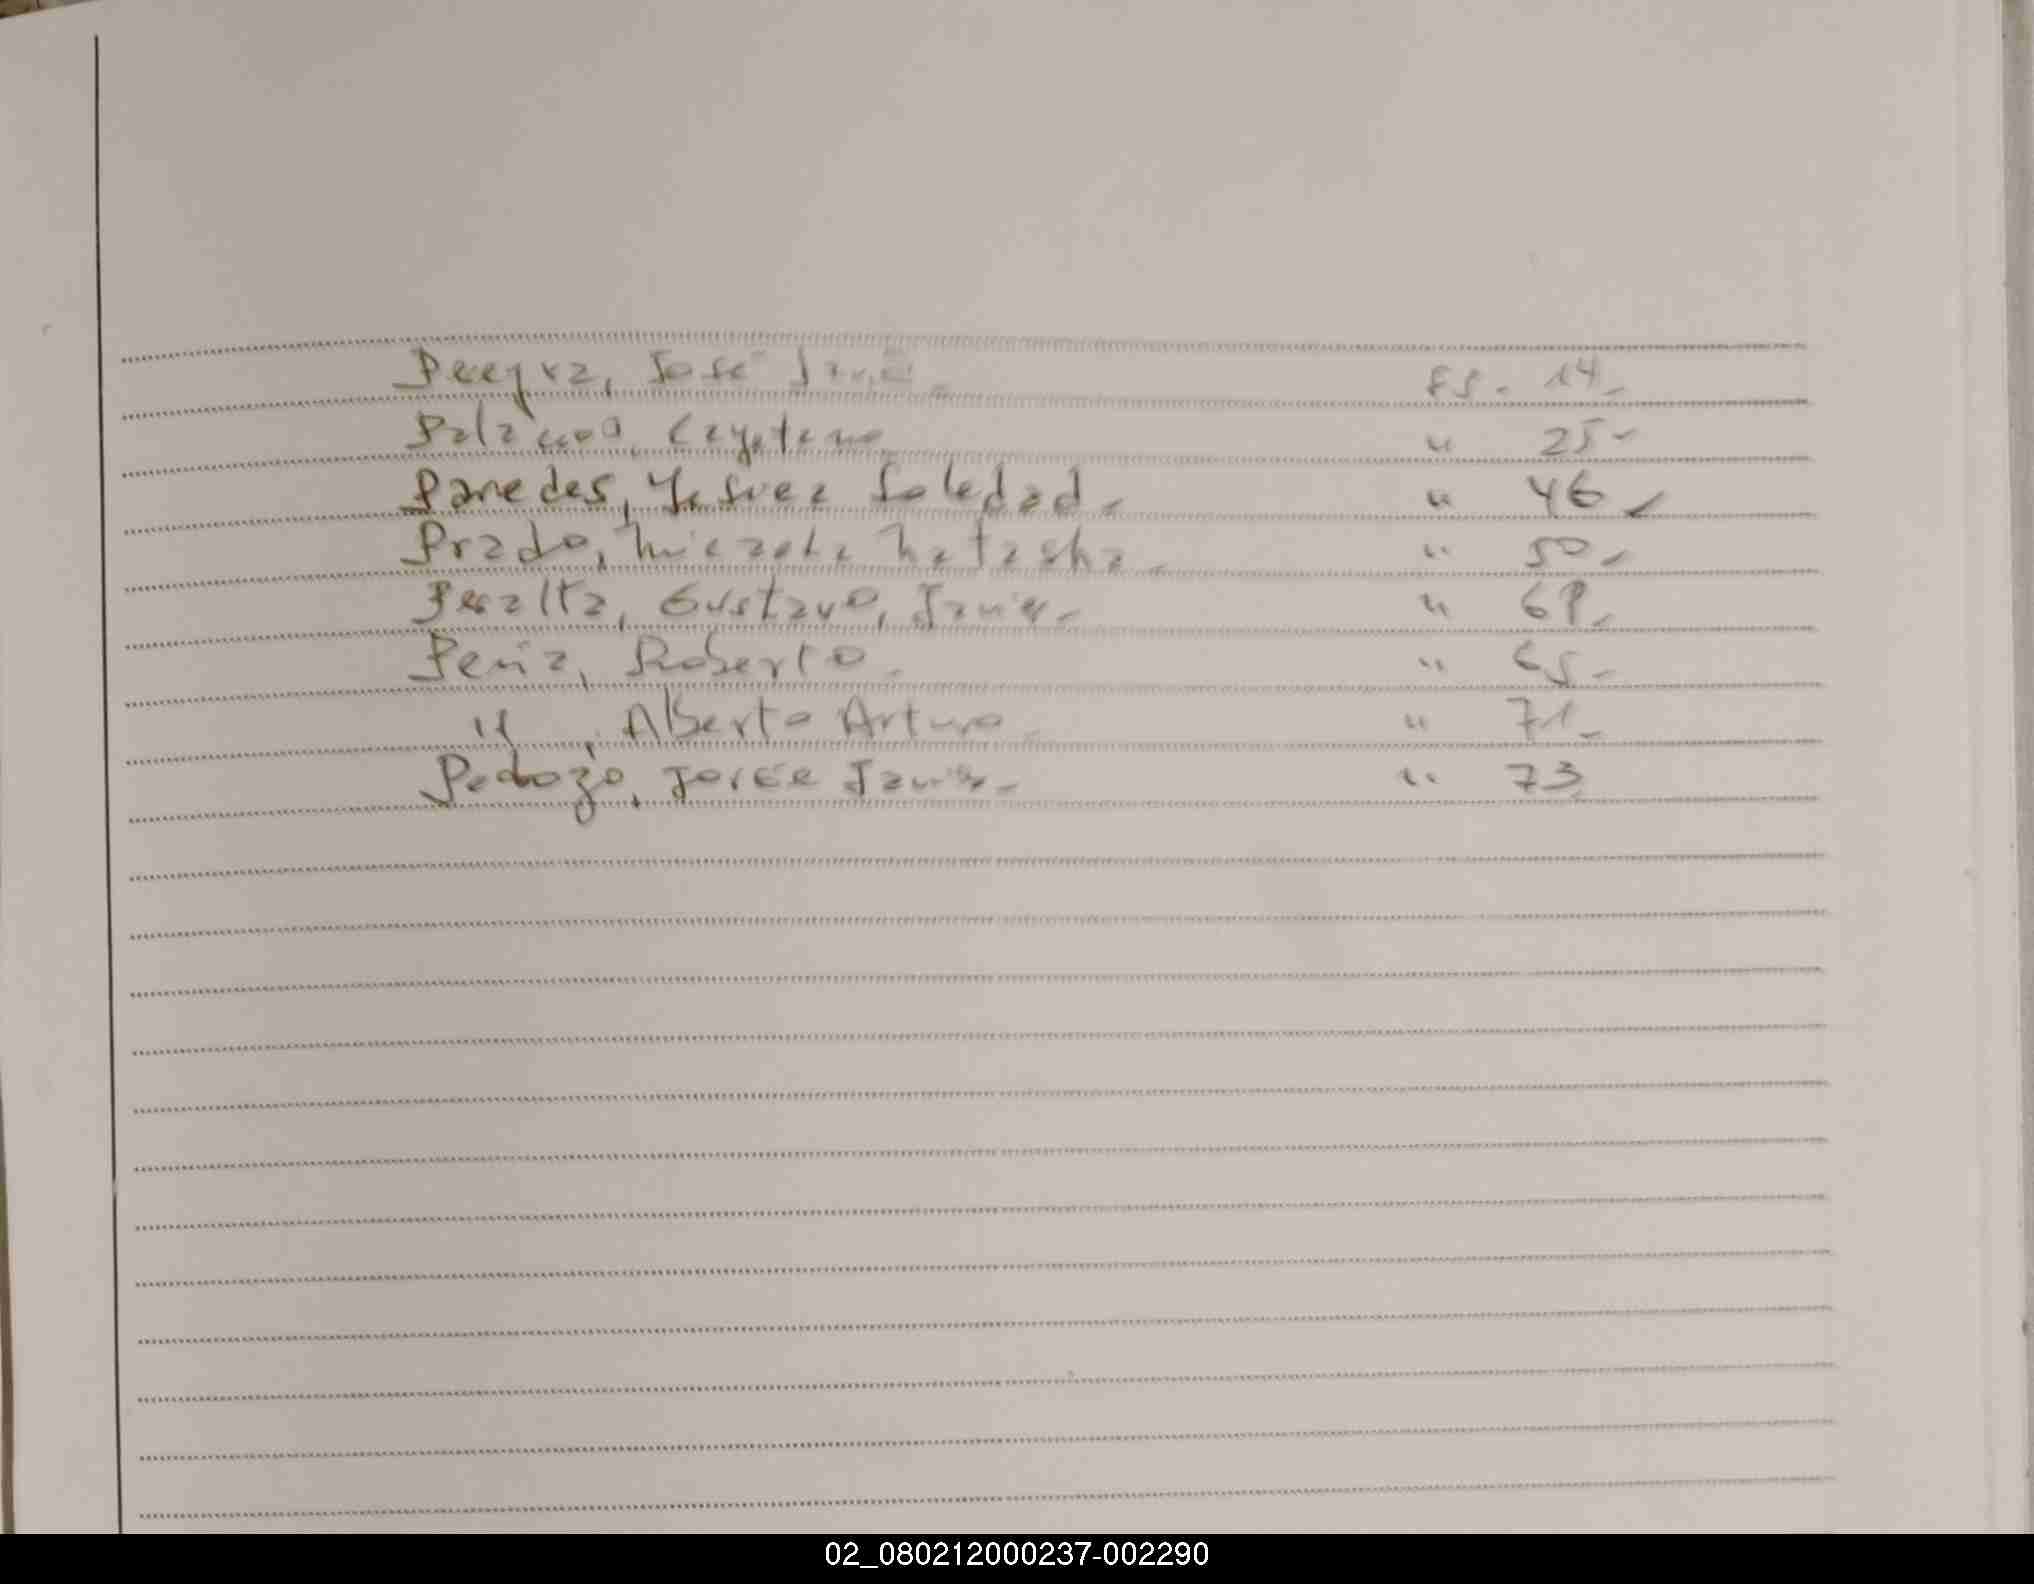 Pereyra, José Javier. FS. 14.
Cayetano " 25-
Paredes, Soledad. " 46-
Prado, Micaela Natasha. " 50-
Peralta, Gustavo, Javier. "
Peña, Roberto. " 65-
" , Alberto Arturo. " 71-
Pedozo, Jorge Javier. " 73
02_080212000237-002290